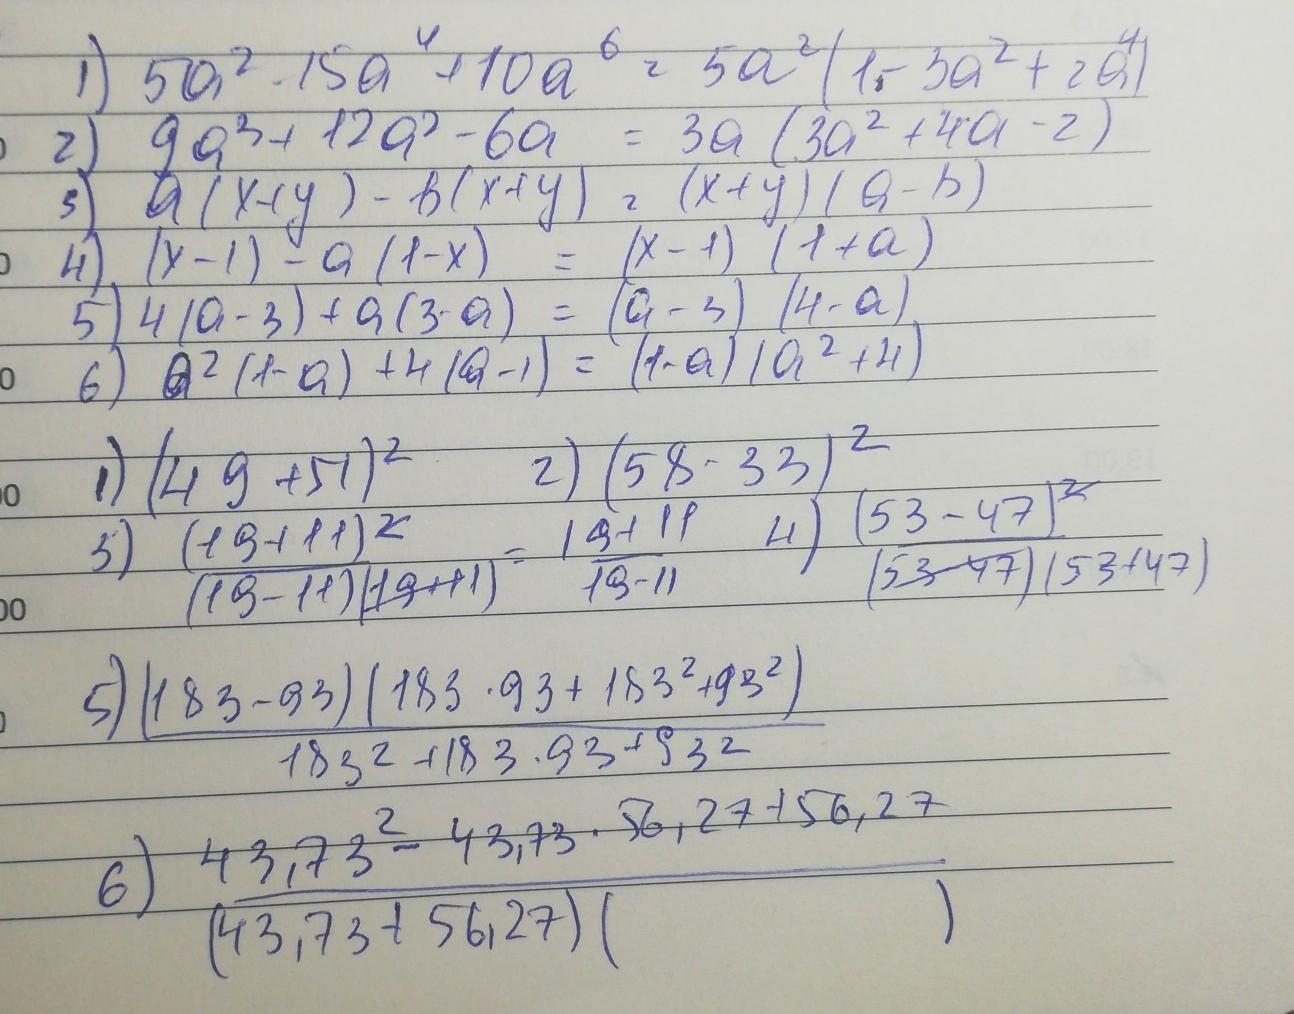 1) 5a² - 15a⁴ + 10a⁶ = 5a² (1 - 3a² + 2a⁴)
2) 9a³ + 12a² - 6a = 3a (3a² + 4a - 2)
3) a (x+y) - b (x+y) = (x+y) (a-b)
4) (x-1) - a (1-x) = (x-1) (1+a)
5) 4(a-3) + a(3-a) = (a-3) (4-a)
6) a² (1-a) + 4(a-1) = (1-a) (a²+4)
1) (49 + 51)² 2) (58 - 33)²
3) (19+11)² / (19-11)(19+11) = 19+11 / 19-11 4) (53-47)² / (53-47)(53+47)
5) (183-93) (183·93 + 183² + 93²) / 183² + 183·93 + 93²
6) 43,73² - 43,73 · 56,27 + 56,27 / (43,73 + 56,27) ( )